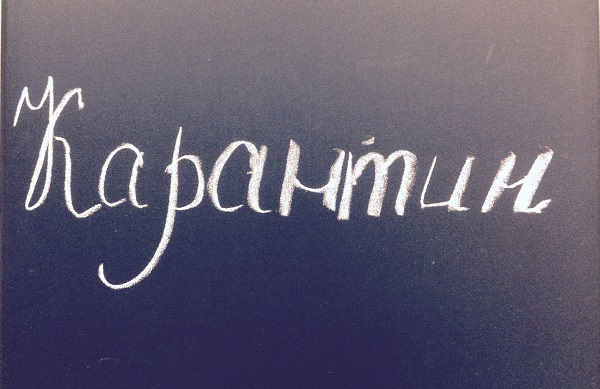 Карантин